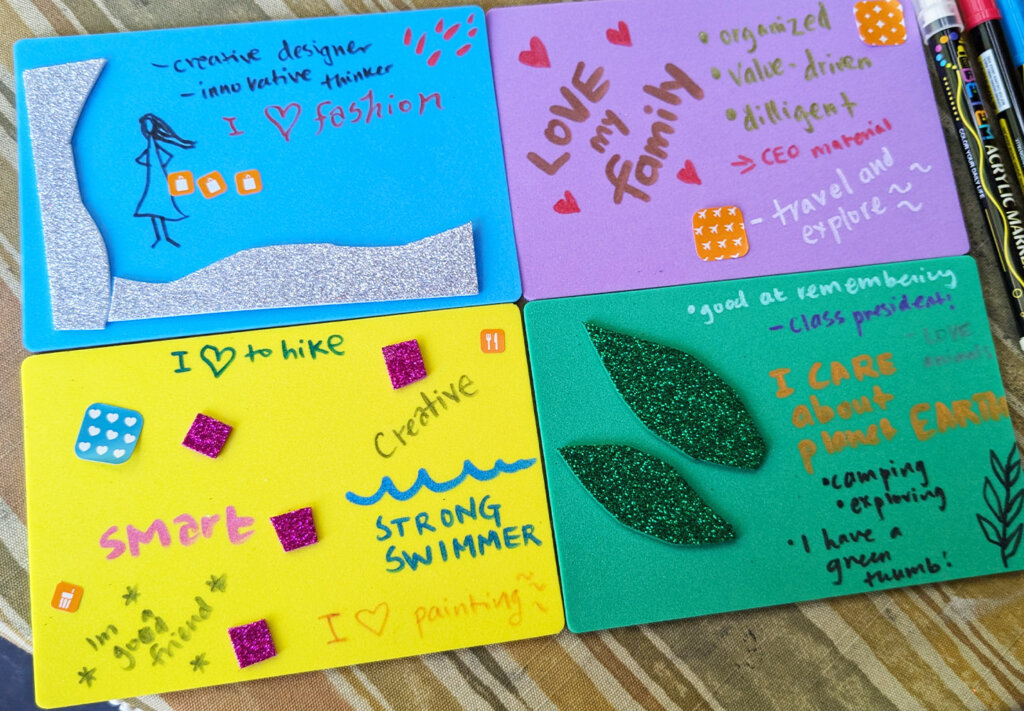 - creative designer
- innovative thinker
I ♡ fashion
LOVE
my
family
• organized
• value-driven
• dilligent
→ CEO material
- travel and
explore ~~
I ♡ to hike
Creative
smart
STRONG
SWIMMER
Im
good
friend
I ♡ painting
• good at remembering
- Class president!
- LOVE
animals
I CARE
about
planet EARTH
• camping
• exploring
• I have a
green
thumb!
ACRYLIC MARKE
COLOR YOUR DAILY LIFE